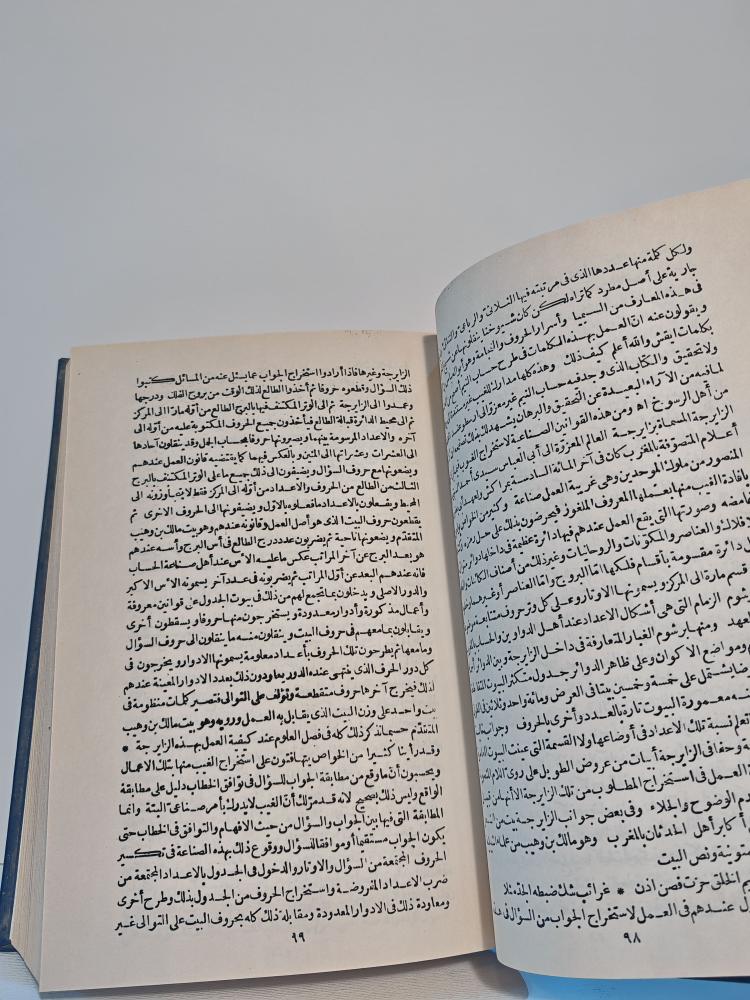 ولكل كلمة منها عددها الذى فى مرتبته فيها الثلاثى والرباعى
جارية على أصل مطرد كما تراه لكن كان شيوخنا ينقلونها عن
فى هذه المعارف من السيميا وأسرار الحروف والنجامة وهو أبو العباس
ويقولون عنه ان العمل بهذه الكلمات فى طرح حساب النيم أصح من
بكلمات ايقش والله أعلم كيف ذلك وهذه كلها مدارك للغيب غير مستندة
ولا تحقيق والكتاب الذى وجد فيه حساب النيم غير معزوّ الى ارسطو عند
لما فيه من الآراء البعيدة عن التحقيق والبرهان يشهد لك بذلك
من أهل الرسوخ اه ومن هذه القوانين الصناعية لاستخراج الغيوب
الزايرجة المسماة بزايرجة العالم المعزوّة الى أبى العباس سيدى أحمد
أعلام المتصوّفة بالمغرب كان فى آخر المائة السادسة بمراكش
المنصور من ملوك الموحدين وهى غريبة العمل صناعة وكثير من الخواص
بافادة الغيب منها بعملها المعروف الملغوز فيحرضون بذلك على حل رمزه
امضه وصورتها التى يقع العمل عندهم فيها دائرة عظيمة فى داخلها دوائر
فلاك والعناصر والمكوّنات والروحانيات وغير ذلك من أصناف الكائنات
دائرة مقسومة بأقسام فلكها امّا البروج وامّا العناصر أو غيرهما
قسم مارة الى المركز ويسمونها الاوتار وعلى كل وتر حروف متتابعة
شوم الزمام التى هى أشكال الاعداد عند أهل الدواوين والحساب
العهد ومنها برشوم الغبار المتعارفة فى داخل الزايرجة وبين الدوائر
م ومواضع الاكوان وعلى ظاهر الدوائر جدول متكثر البيوت
رضا يشتمل على خمسة وخمسين بيتا فى العرض ومائة واحد وثلاثين
ه معمورة البيوت تارة بالعدد وأخرى بالحروف وجوانب
تعلم نسبة تلك الأعداد فى أوضاعها ولا القسمة التى عينت البيوت
وحفافى الزايرجة أبيات من عروض الطويل على روىّ اللام
ة العمل فى استخراج المطلوب من تلك الزايرجة الا أنها من
م الوضوح والجلاء وفى بعض جوانب الزايرجة بيت من
أكابر أهل الحدثان بالمغرب وهو مالك بن وهيب من علماء
تونة ونص البيت
م الخلق حزت فصن اذن * غرائب شك ضبطه الجدّ مثلا
ل عندهم فى العمل لاستخراج الجواب من السؤال فى
٩٨
الزايرجة وغيرها فاذا أرادوا استخراج الجواب عما يسئل عنه من المسائل كتبوا
ذلك السؤال وقطعوه حروفا ثم أخذوا الطالع لذلك الوقت من بروج الفلك ودرجها
وعمدوا الى الزايرجة ثم الى الوتر المكتنف فيها بالبرج الطالع من أوله مارّا الى المركز
ثم الى محيط الدائرة قبالة الطالع فيأخذون جميع الحروف المكتوبة عليه من أوله الى
آخره والاعداد المرسومة بينهما ويصيرونها حروفا بحساب الجمل وقد ينقلون آحادها
الى العشرات وعشراتها الى المئين وبالعكس فيهما كما يقتضيه قانون العمل عندهم
ويضعونها مع حروف السؤال ويضيفون الى ذلك جميع ما على الوتر المكتنف بالبرج
الثالث من الطالع من الحروف والاعداد من أوله الى المركز فقط لا يتجاوزونه الى
المحيط ويفعلون بالاعداد ما فعلوه بالاوّل ويضيفونها الى الحروف الاخرى ثم
يقطعون حروف البيت الذى هو أصل العمل وقانونه عندهم وهو بيت مالك بن وهيب
المتقدّم ويضعونها ناحية ثم يضربون عدد درج الطالع فى أس البرج وأسه عندهم
هو بعد البرج عن آخر المراتب عكس ما عليه الأس عند أهل صناعة الحساب
فانه عندهم البعد عن أوّل المراتب ثم يضربونه فى عدد آخر يسمونه الأس الاكبر
والدور الاصلى ويدخلون بما تجمع لهم من ذلك فى بيوت الجدول على قوانين معروفة
وأعمال مذكورة وأدوار معدودة ويستخرجون منها حروفا ويسقطون أخرى
ويقابلون بما معهم فى حروف البيت وينقلون منه ما ينقلون الى حروف السؤال
وما معها ثم يطرحون تلك الحروف بأعداد معلومة يسمونها الادوار ويخرجون فى
كل دور الحرف الذى ينتهى عنده الدور يعاودون ذلك بعدد الادوار المعينة عندهم
لذلك فيخرج آخرها حروف متقطعة وتؤلف على التوالى فتصير كلمات منظومة فى
بيت واحد على وزن البيت الذى يقابل به العمل ورويه وهو بيت مالك بن وهيب
المتقدّم حسبما نذكر ذلك كله فى فصل العلوم عند كيفية العمل بهذه الزايرجة *
وقد رأينا كثيرا من الخواص يتهافتون على استخراج الغيب منها بتلك الاعمال
ويحسبون أن ما وقع من مطابقة الجواب للسؤال فى توافق الخطاب دليل على مطابقة
الواقع وليس ذلك بصحيح لانه قد مرّ لك أن الغيب لا يدرك بأمر صناعى البتة وانما
المطابقة التى فيها بين الجواب والسؤال من حيث الافهام والتوافق فى الخطاب حتى
يكون الجواب مستقيما أو موافقا للسؤال ووقوع ذلك بهذه الصناعة فى تكسير
الحروف المجتمعة من السؤال والاوتار والدخول فى الجدول بالاعداد المجتمعة من
ضرب الاعداد المفروضة واستخراج الحروف من الجدول بذلك وطرح أخرى
ومعاودة ذلك فى الادوار المعدودة ومقابلة ذلك كله بحروف البيت على التوالى غير
٩٩